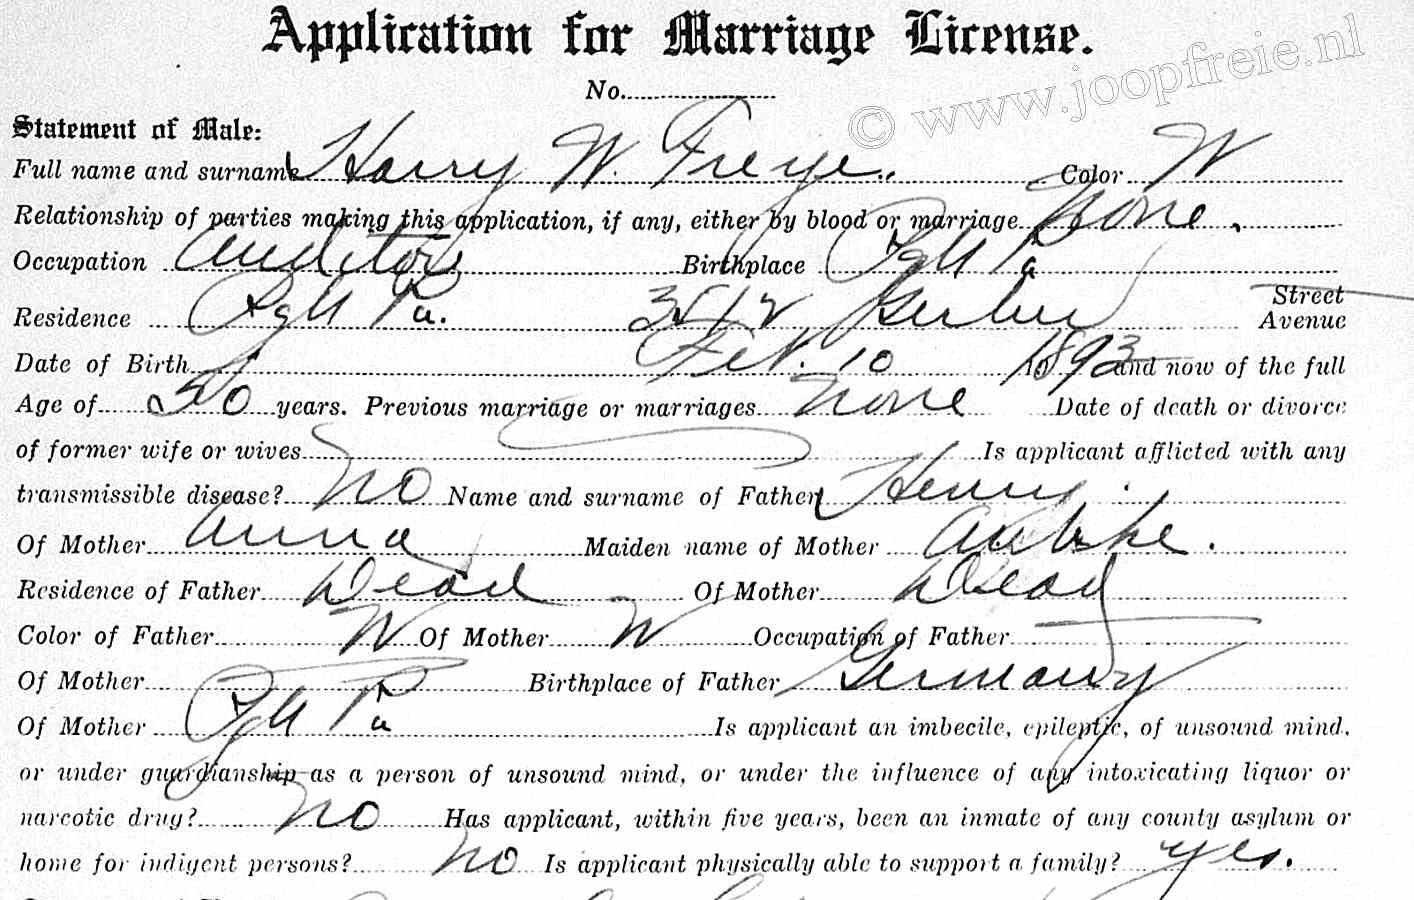 Application for Marriage License.
© www.joopfreie.nl
No.
Statement of Male:
Full name and surname Harry W. Freye. Color W
Relationship of parties making this application, if any, either by blood or marriage None.
Occupation Auditor Birthplace Pgh Pa
Residence Pgh Pa. 3512 Gerber Street Avenue
Date of Birth Feb. 10 1893 and now of the full
Age of 50 years. Previous marriage or marriages None Date of death or divorce
of former wife or wives Is applicant afflicted with any
transmissible disease? No Name and surname of Father Henry
Of Mother Anna Maiden name of Mother
Residence of Father Dead Of Mother Dead
Color of Father W Of Mother W Occupation of Father
Of Mother Birthplace of Father Germany
Of Mother Pgh Pa Is applicant an imbecile, epileptic, of unsound mind,
or under guardianship as a person of unsound mind, or under the influence of any intoxicating liquor or
narcotic drug? No Has applicant, within five years, been an inmate of any county asylum or
home for indigent persons? No Is applicant physically able to support a family? yes.